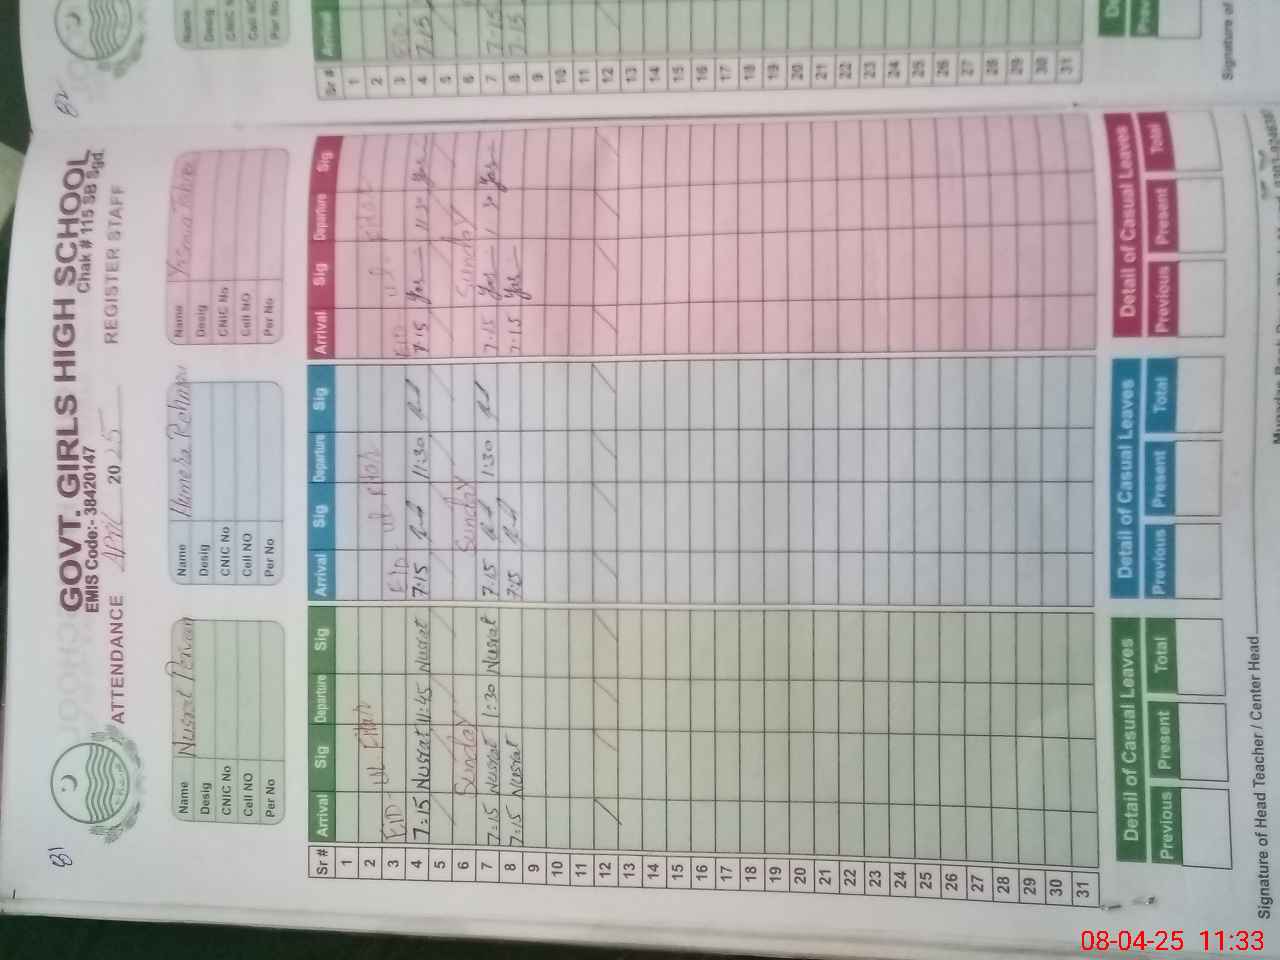 81
GOVT. GIRLS HIGH SCHOOL
EMIS Code:- 38420147 Chak # 115 SB Sgd.
ATTENDANCE April 2025 REGISTER STAFF
Name Nusrat Perveen
Desig
CNIC No
Cell NO
Per No
Name Humera Rehman
Desig
CNIC No
Cell NO
Per No
Name Yasmin Tahira
Desig
CNIC No
Cell NO
Per No
Sr # Arrival Sig Departure Sig Arrival Sig Departure Sig Arrival Sig Departure Sig
1
2
3 EID - UL Fitar EID UL Fitar EID UL - Fitar
4 7:15 Nusrat 11:45 Nusrat 7:15 11:30 7:15 Yas 11:30 Yas
5
6 Sunday Sunday Sunday
7 7:15 Nusrat 1:30 Nusrat 7:15 1:30 7:15 Yas 1:30 Yas
8 7:15 Nusrat 7:15 7:15 Yas
9
10
11
12
13
14
15
16
17
18
19
20
21
22
23
24
25
26
27
28
29
30
31
Detail of Casual Leaves
Previous Present Total
Detail of Casual Leaves
Previous Present Total
Detail of Casual Leaves
Previous Present Total
Signature of Head Teacher / Center Head
82
Name
Desig
CNIC N
Cell NO
Per No
Sr # Arrival
1
2
3 EID -
4 7:15
5
6
7 7:15
8 7:15
9
10
11
12
13
14
15
16
17
18
19
20
21
22
23
24
25
26
27
28
29
30
31
De
Prev
Signature of
08-04-25 11:33